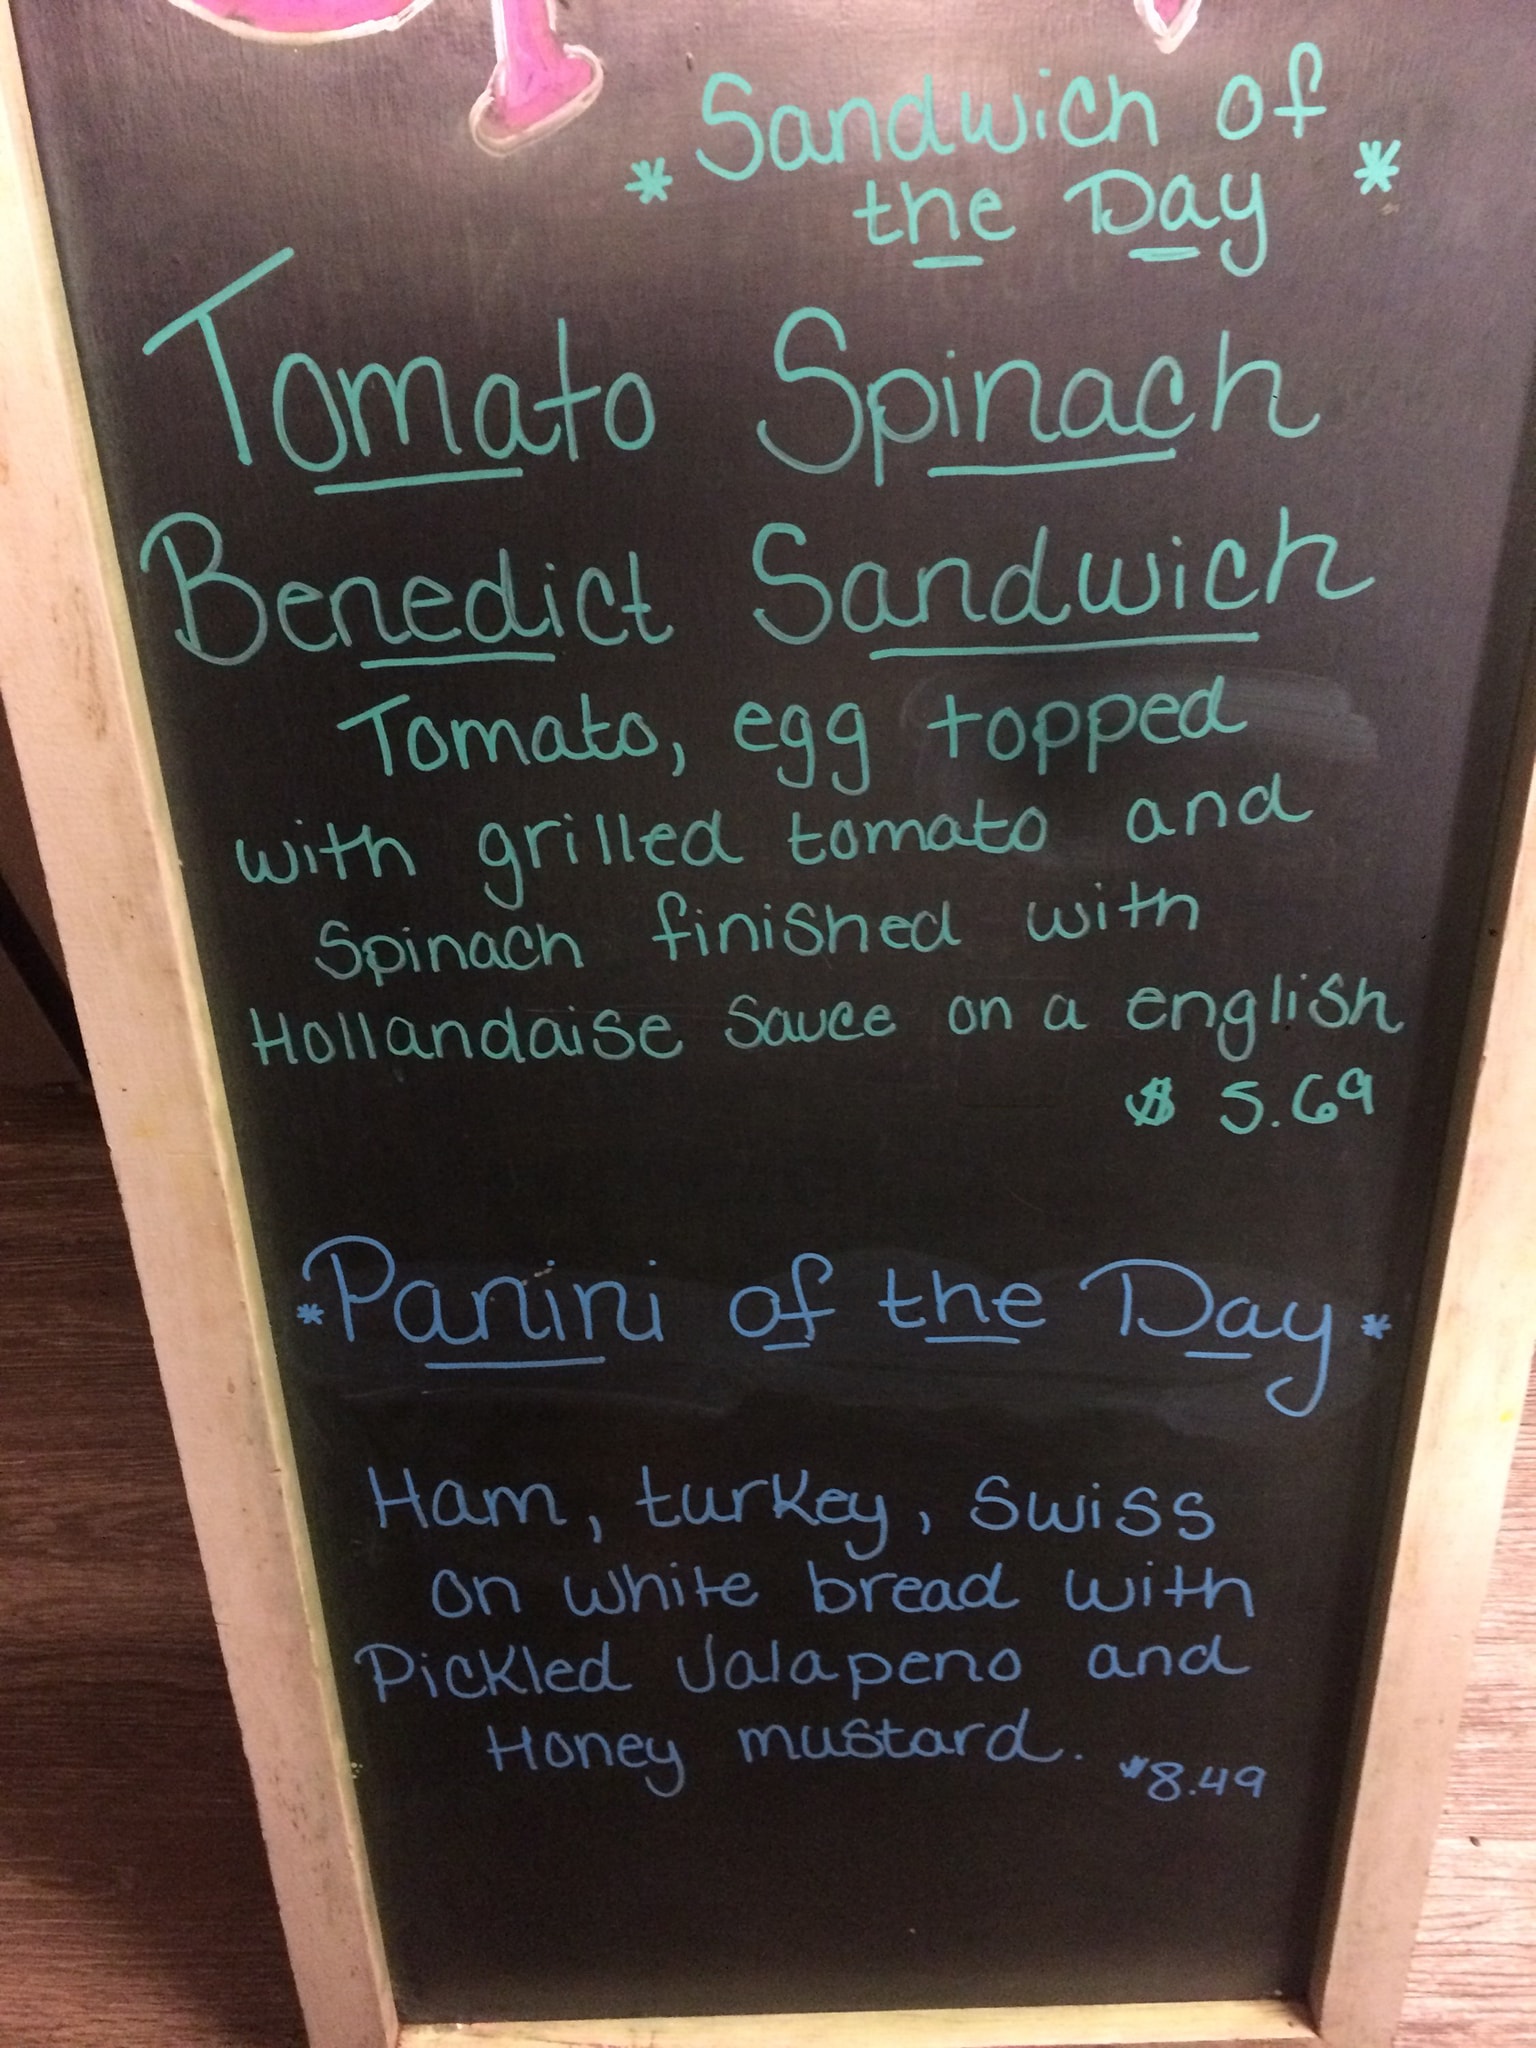 * Sandwich of
the Day *
Tomato Spinach
Benedict Sandwich
Tomato, egg topped
with grilled tomato and
Spinach finished with
Hollandaise sauce on a english
$ 5.69
*Panini of the Day*
Ham, turkey, swiss
on white bread with
Pickled Jalapeno and
Honey mustard.
$8.49